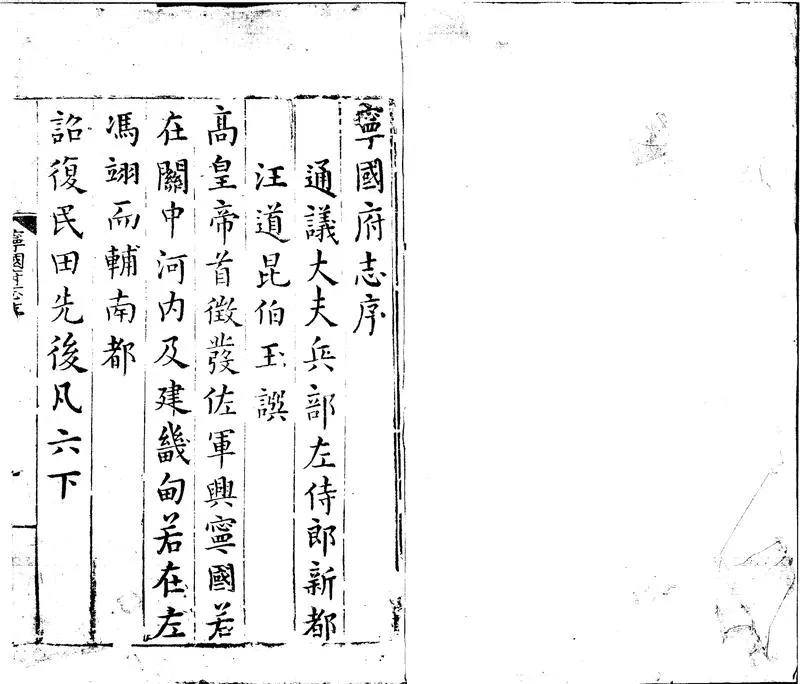 寧國府志序
通議大夫兵部左侍郎新都
汪道昆伯玉譔
高皇帝首徵發佐軍興寧國若
在關中河內及建畿甸若在左
馮翊而輔南都
詔復民田先後凡六下
寧國府志序